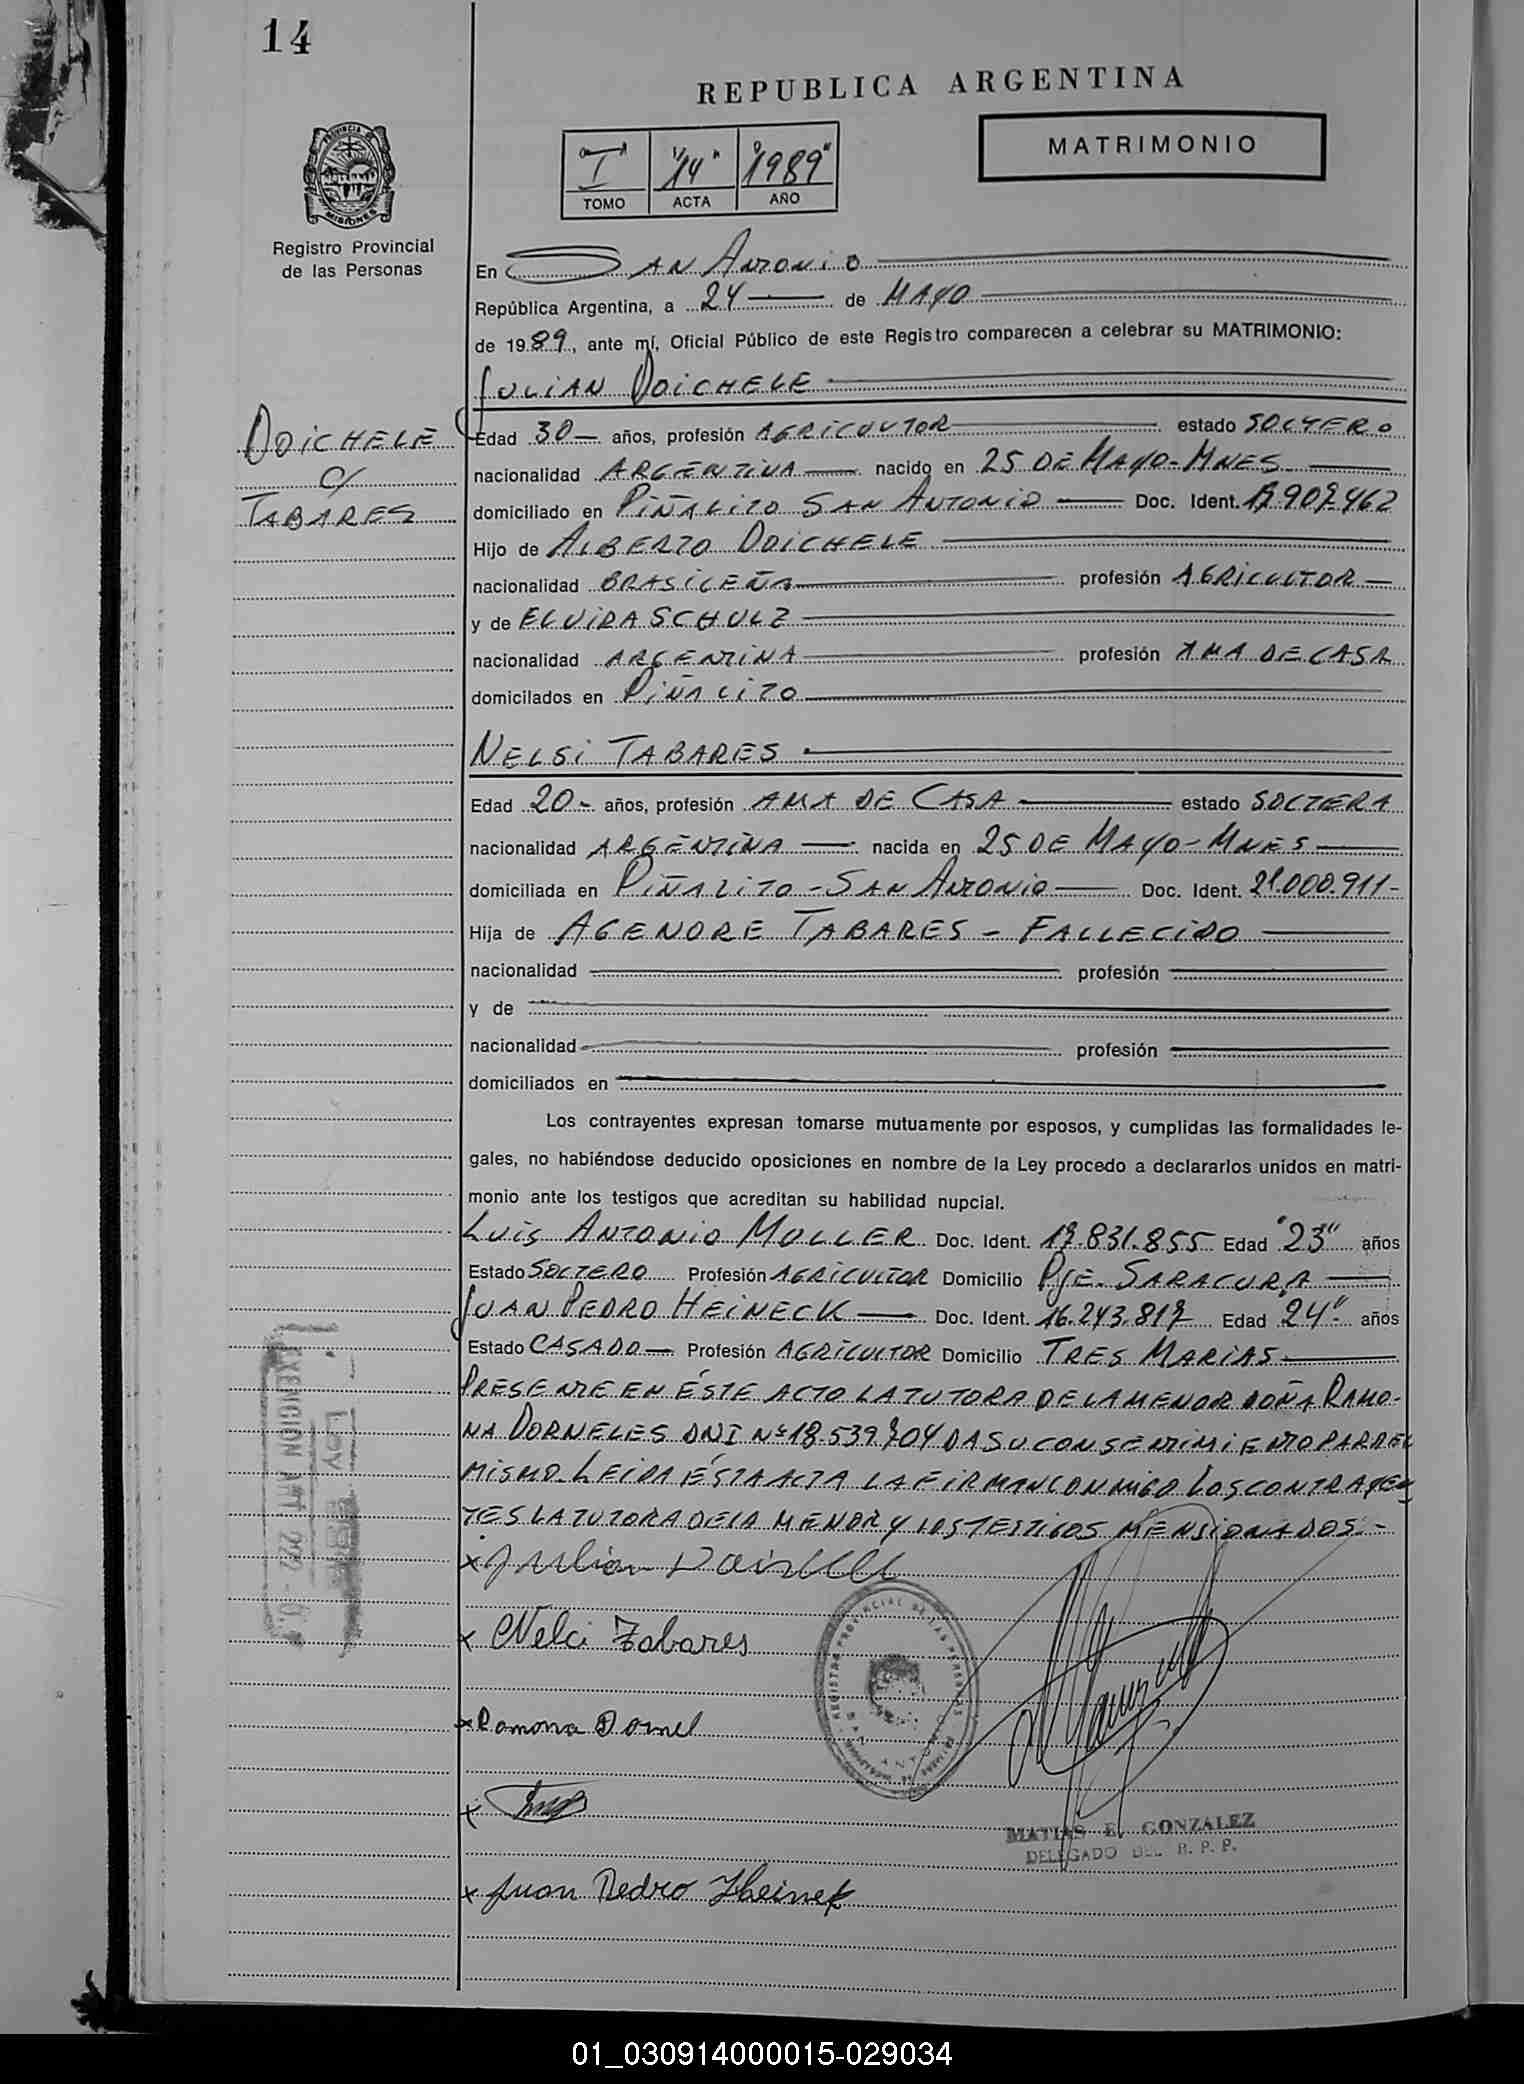 14
REPUBLICA ARGENTINA
MATRIMONIO
I "14" "1989"
TOMO ACTA AÑO
PROVINCIA DE
MISIONES
Registro Provincial
de las Personas
En SAN ANTONIO
República Argentina, a 24 de MAYO
de 1989, ante mí, Oficial Público de este Registro comparecen a celebrar su MATRIMONIO:
JULIAN DOICHELE
DOICHELE
c/
TABARES
Edad 30 años, profesión AGRICUVTOR estado SOLTERO
nacionalidad ARGENTINA nacido en 25 DE MAYO-MNES
domiciliado en PIÑALITO SAN ANTONIO Doc. Ident. 17.907.462
Hijo de ALBERTO DOICHELE
nacionalidad BRASILEÑA profesión AGRICULTOR
y de ELVIRA SCHULZ
nacionalidad ARGENTINA profesión AMA DE CASA
domicilados en PIÑALITO
NELSI TABARES
Edad 20 años, profesión AMA DE CASA estado SOLTERA
nacionalidad ARGENTINA nacida en 25 DE MAYO-MNES
domiciliada en PIÑALITO-SAN ANTONIO Doc. Ident. 21.000.911-
Hija de AGENORE TABARES - FALLECIDO
nacionalidad profesión
y de
nacionalidad profesión
domiciliados en
Los contrayentes expresan tomarse mutuamente por esposos, y cumplidas las formalidades le-
gales, no habiéndose deducido oposiciones en nombre de la Ley procedo a declararlos unidos en matri-
monio ante los testigos que acreditan su habilidad nupcial.
LUIS ANTONIO MULLER Doc. Ident. 17.831.855 Edad "23" años
Estado SOLTERO Profesión AGRICULTOR Domicilio PJE. SARACURA
JUAN PEDRO HEINECK Doc. Ident. 16.243.817 Edad 24" años
Estado CASADO Profesión AGRICULTOR Domicilio TRES MARIAS
PRESENTE EN ÉSTE ACTO LA TUTORA DE LA MENOR DOÑA RAMO-
NA DORNELES DNI Nº 18.539.704 DA SU CONSENTIMIENTO PARA EL
MISMO. LEIDA ÉSTA ACTA LA FIRMAN CONMIGO LOS CONTRAYEN
TES LA TUTORA DE LA MENOR Y LOS TESTIGOS MENSIONADOS.-
Ley
EXENCION ART. 292
x Julian
x Nelci Tabares
x Ramona Dornel
x
x Juan Pedro Heinek
REGISTRO PROVINCIAL DE LAS PERSONAS
SAN ANTONIO
MATIAS E. GONZALEZ
DELEGADO DEL R. P. P.
01_030914000015-029034